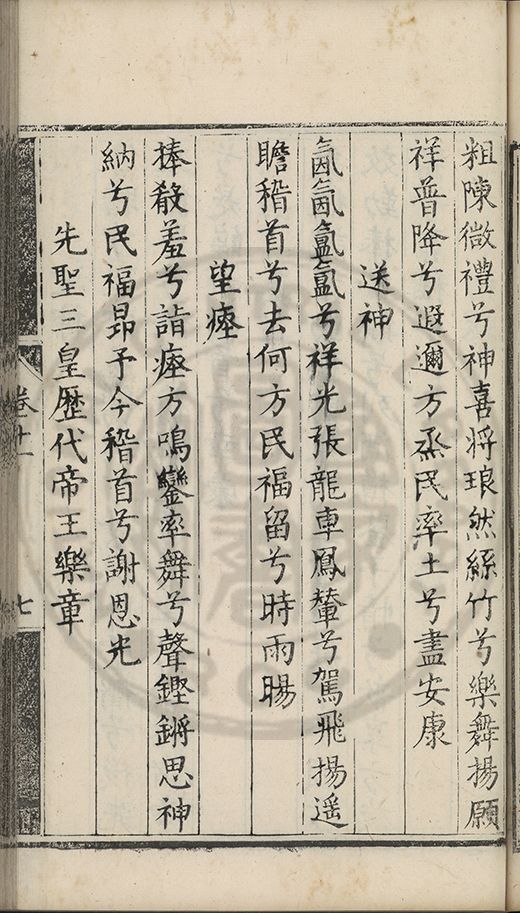 粗陳微禮兮神喜将琅然絲竹兮樂舞揚願
祥普降兮遐邇方烝民率土兮盡安康
送神
氤氤氳氳兮祥光張龍車鳳輦兮駕飛揚遥
瞻稽首兮去何方民福留兮時雨暘
望瘞
捧殽羞兮詣瘞方鳴鑾率舞兮聲鏗鏘思神
納兮民福昻予今稽首兮謝恩光
先聖三皇歷代帝王樂章
卷十一
七